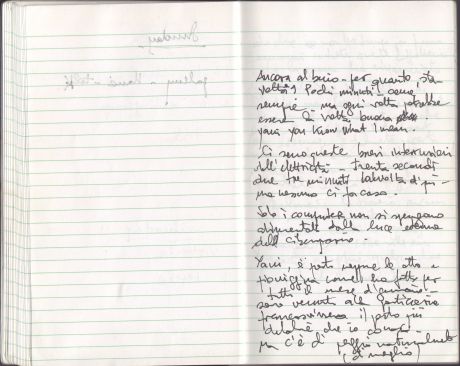 Sunday
Ancora al buio - per quanto sta
volta? Pochi minuti - come
sempre - ma ogni volta potrebbe
essere la volta buona
yani you know what I mean.
Ci sono queste brevi interruzioni
dell'elettricità - trenta secondi
due tre minuti talvolta di più -
ma nessuno ci fa caso.
Solo i computer non si spengono
alimentati dalla luce
del Ciberspazio.
Yani, è
come ha fatto per
tutti il mese d'
sono venuto alla pasticceria
francovienese il posto più
che io conosca
ma c'è di peggio naturalmente
(di meglio)